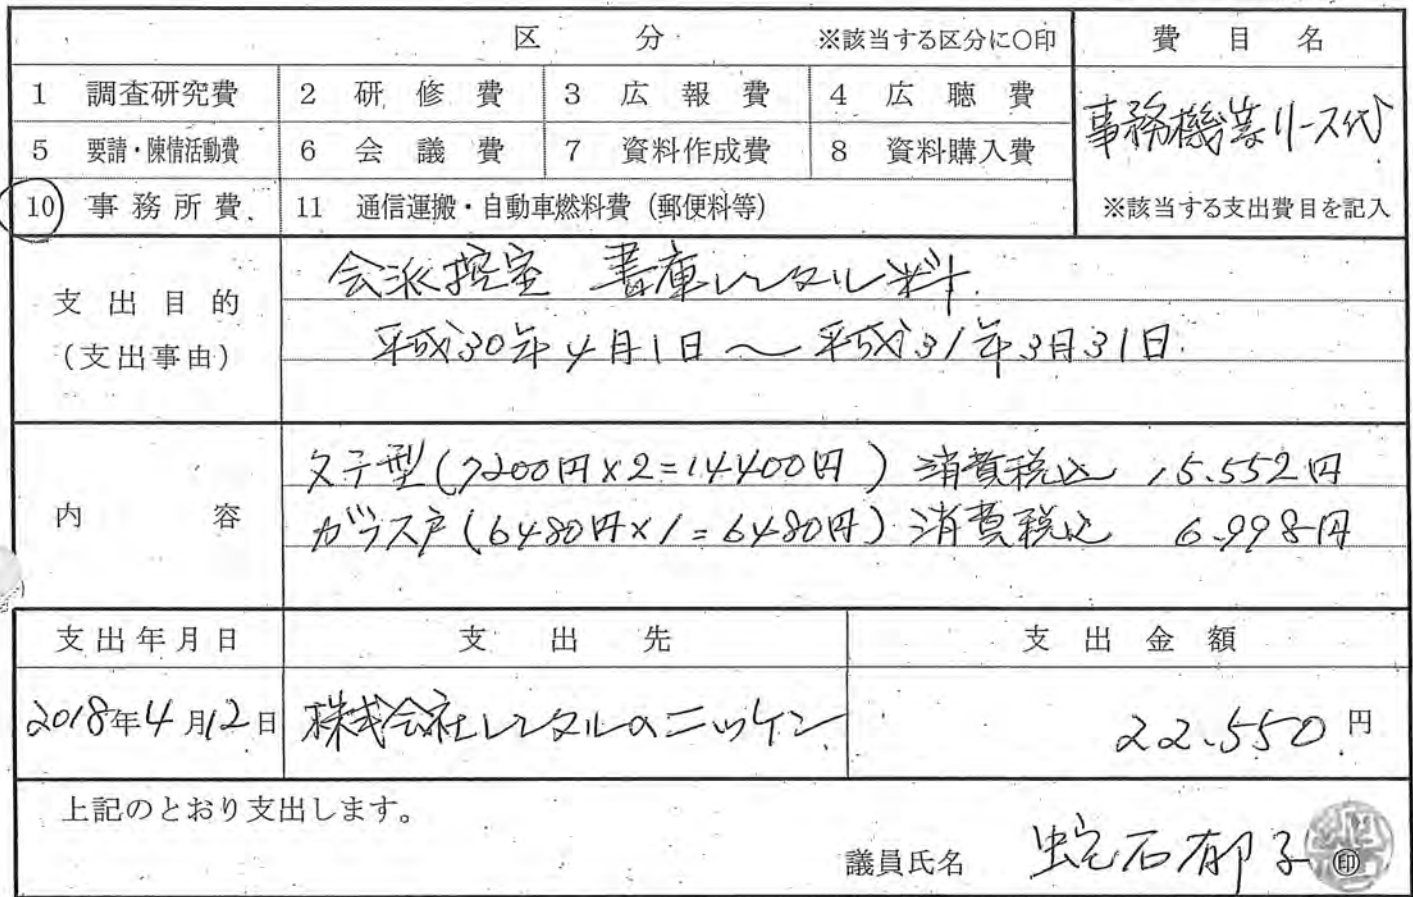 区 分 ※該当する区分に○印 費目名
1 調査研究費 2 研修費 3 広報費 4 広聴費
事務機等リース代
5 要請・陳情活動費 6 会議費 7 資料作成費 8 資料購入費
10 事務所費 11 通信運搬・自動車燃料費(郵便料等) ※該当する支出費目を記入
会派控室 書庫レンタル料
支出目的
平成30年4月1日〜平成31年3月31日
(支出事由)
タテ型(7200円×2=14400円)消費税込 15.552円
内容
ガラス戸(6480円×1=6480円)消費税込 6.998円
支出年月日 支出先 支出金額
2018年4月12日 株式会社レンタルのニッケン 22.550円
上記のとおり支出します。
議員氏名 蛇石郁子 ㊞